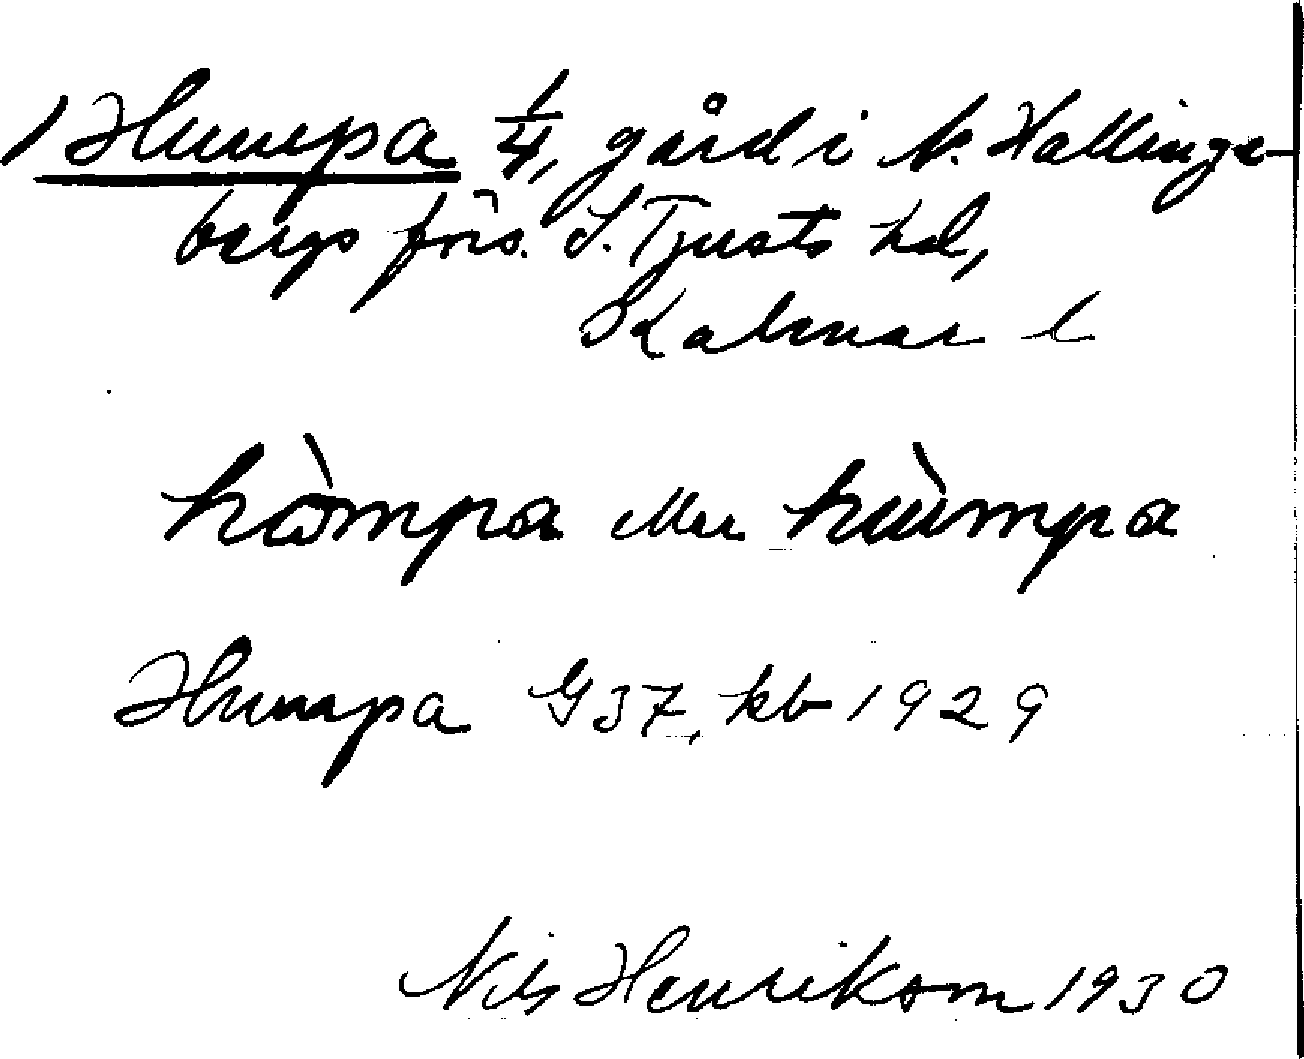 1 Humpa 1/4, gård i N. Hallinge-
bergs förs. S. Tjusts hd,
Kalmar l
hòmpa eller hùmpa
Humpa G 37, kb 1929
Nils Henrikson 1930